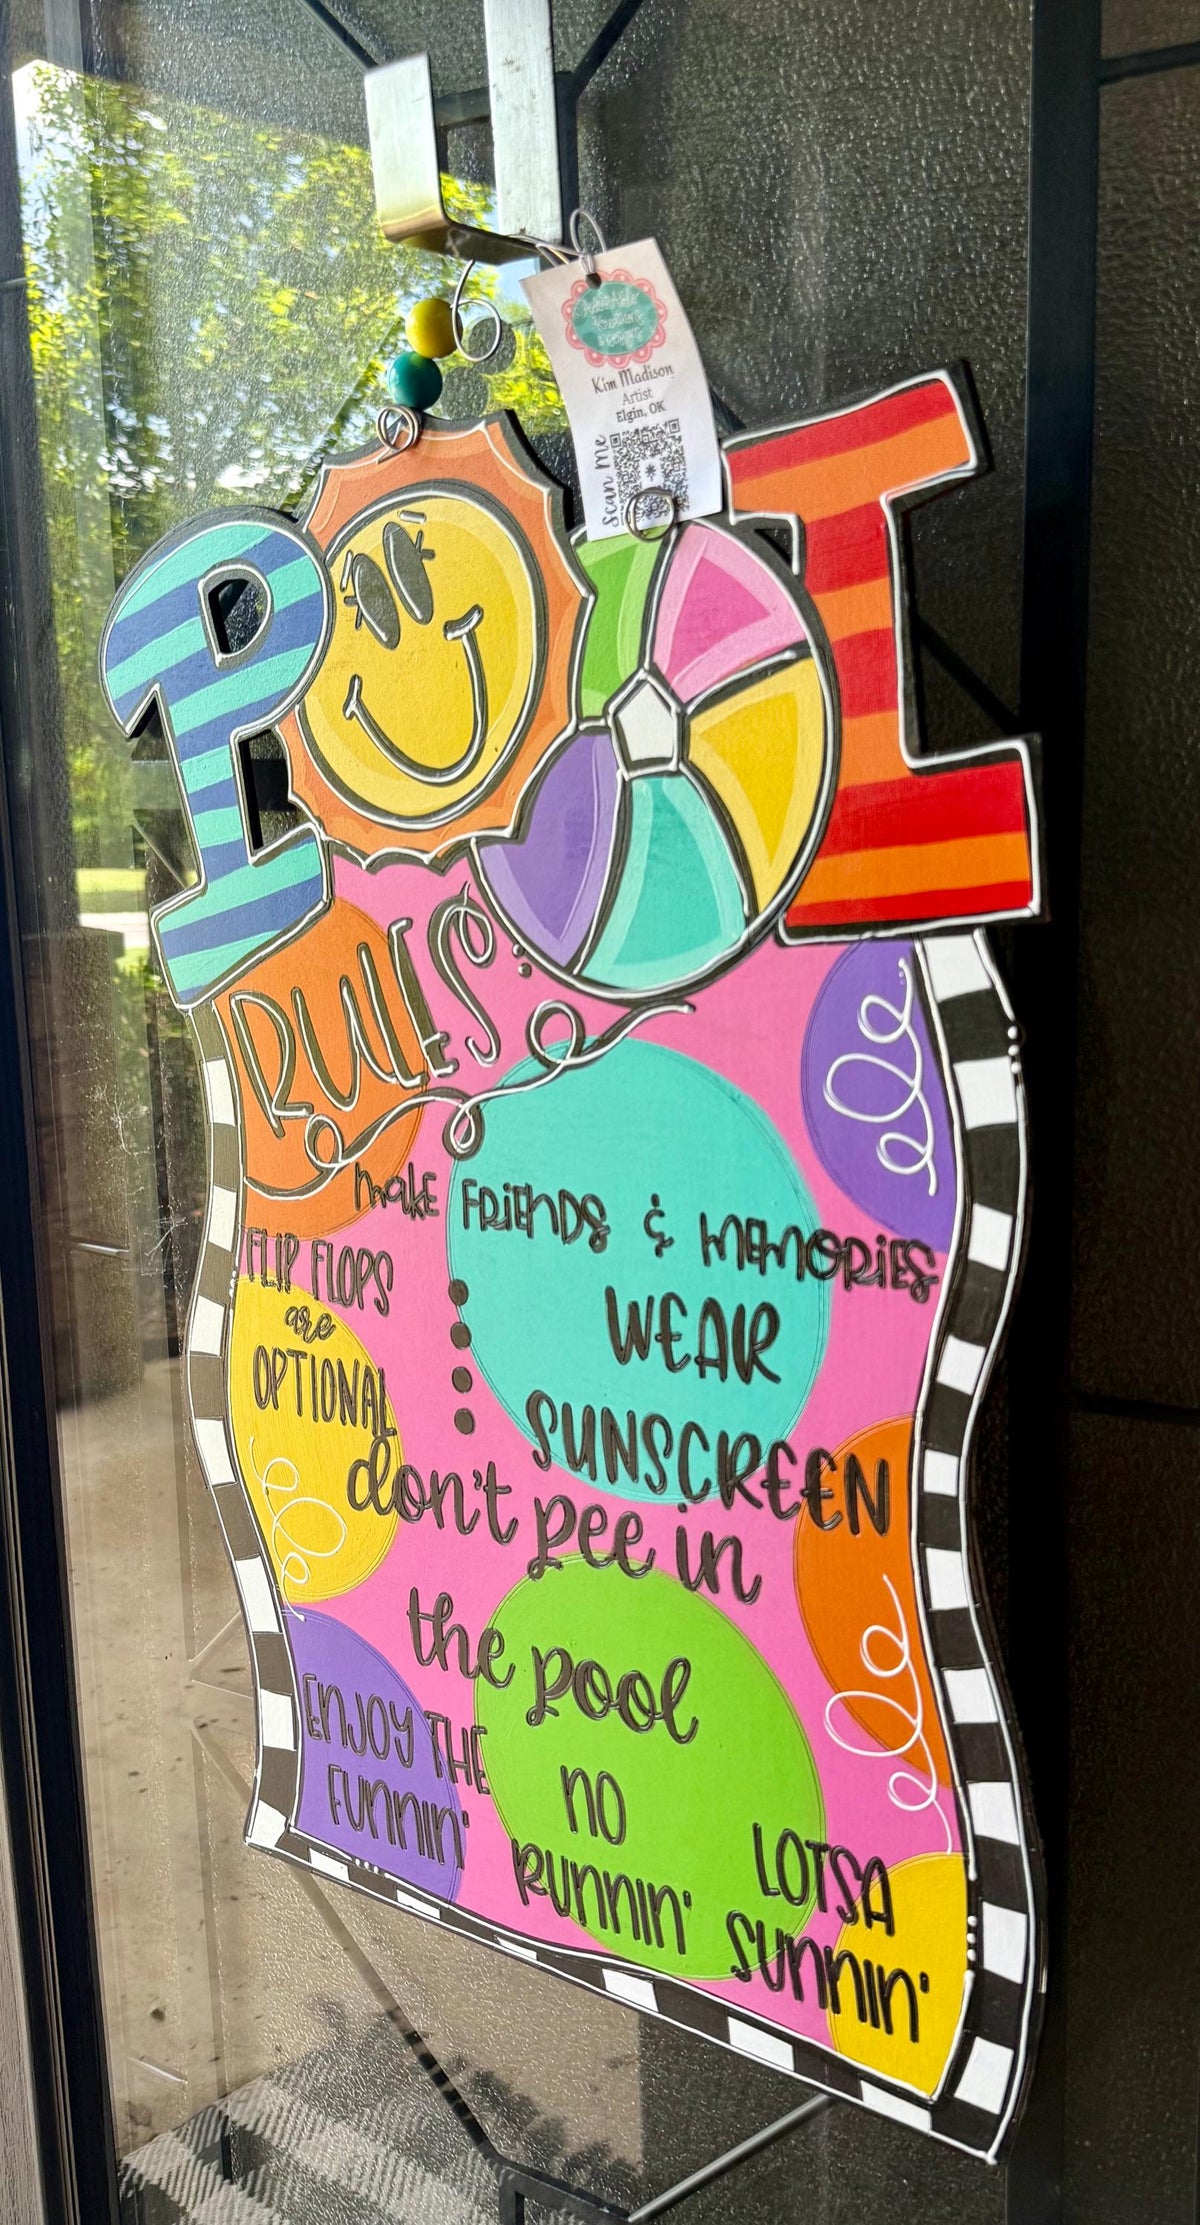 Kim Madison
Artist
Elgin, OK
Scan Me
POOL
RULES:
make FRiENDS & MEMORiES
FLIP FLOPS
are
OPTIONAL
WEAR
SUNSCREEN
don't pee in
the pool
ENJOY THE
FUNNIN'
NO
RUNNIN'
LOTSA
SUNNIN'